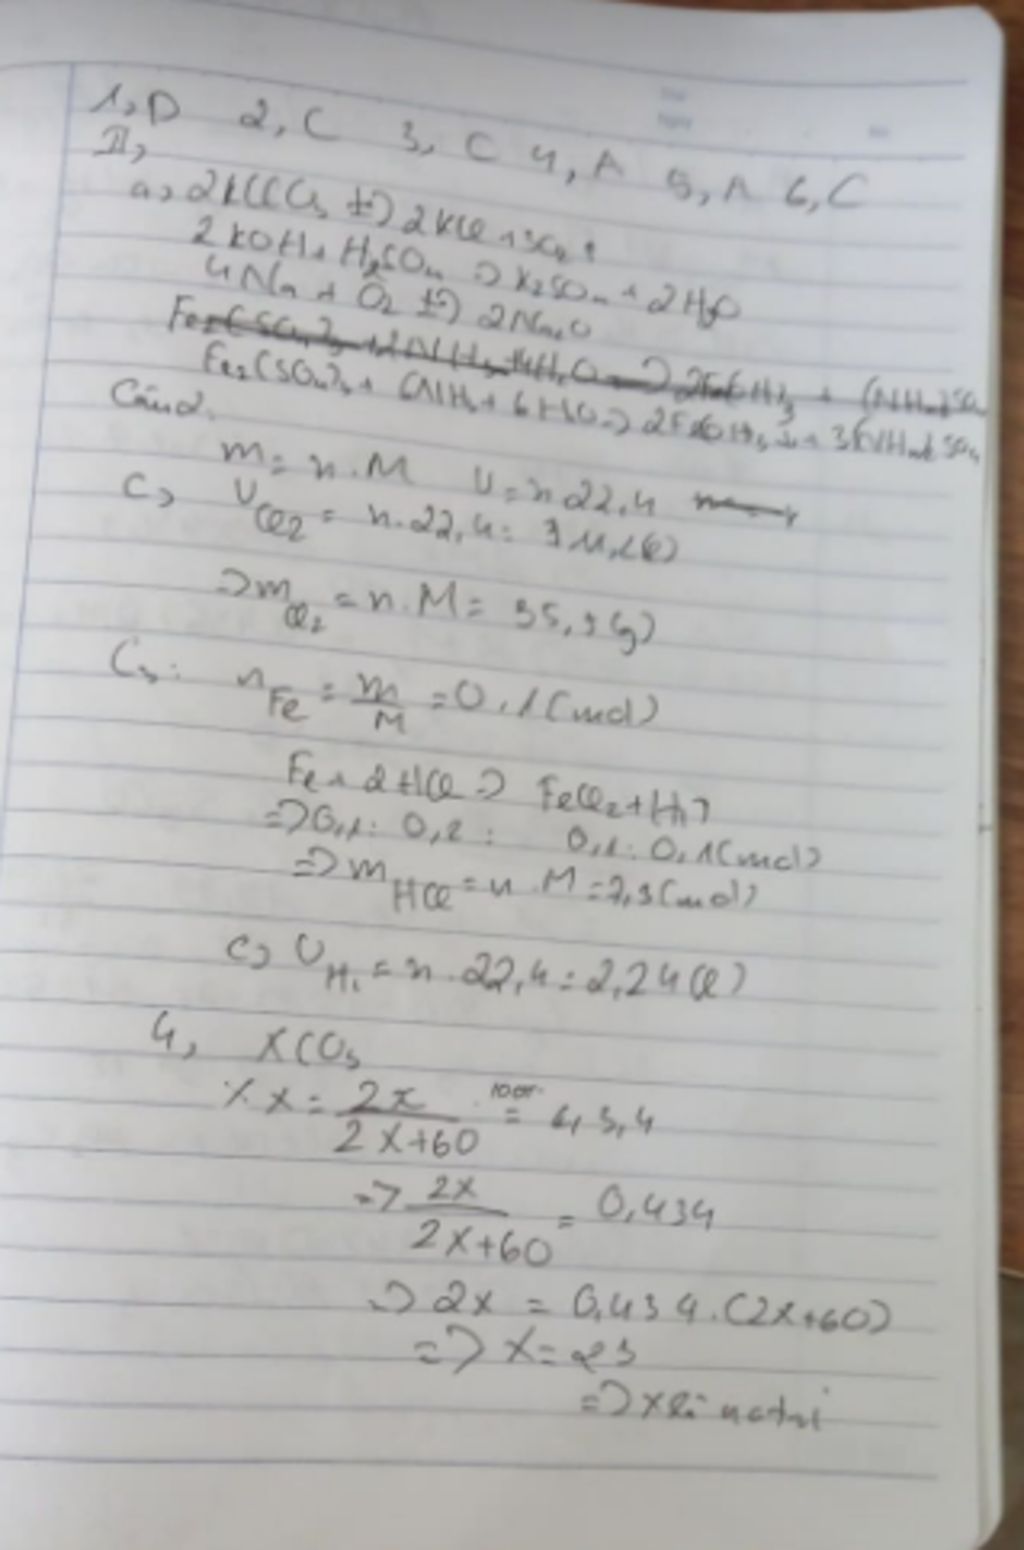 1, D 2, C 3, C 4, A 5, A 6, C
II,
a, 2KClO3 t°→ 2KCl + 3O2 ↑
2KOH + H2SO4 → K2SO4 + 2H2O
4Na + O2 t°→ 2Na2O
Fe2(SO4)3 + 6NH3 + 6H2O → 2Fe(OH)3 ↓ + 3(NH4)2SO4
Câu 2.
m = n.M V = n.22,4
C, VCl2 = n.22,4 = 11,2(l)
=> mCl2 = n.M = 35,5(g)
C3: nFe = m/M = 0,1(mol)
Fe + 2HCl → FeCl2 + H2↑
=> 0,1: 0,2: 0,1: 0,1(mol)
=> mHCl = n.M = 7,3(mol)
c, VH2 = n.22,4 = 2,24(l)
4, XCO3
%X = 2x/2x+60 .100% = 43,4
=> 2x/2x+60 = 0,434
=> 2x = 0,434.(2x+60)
=> X = 23
=> X là natri